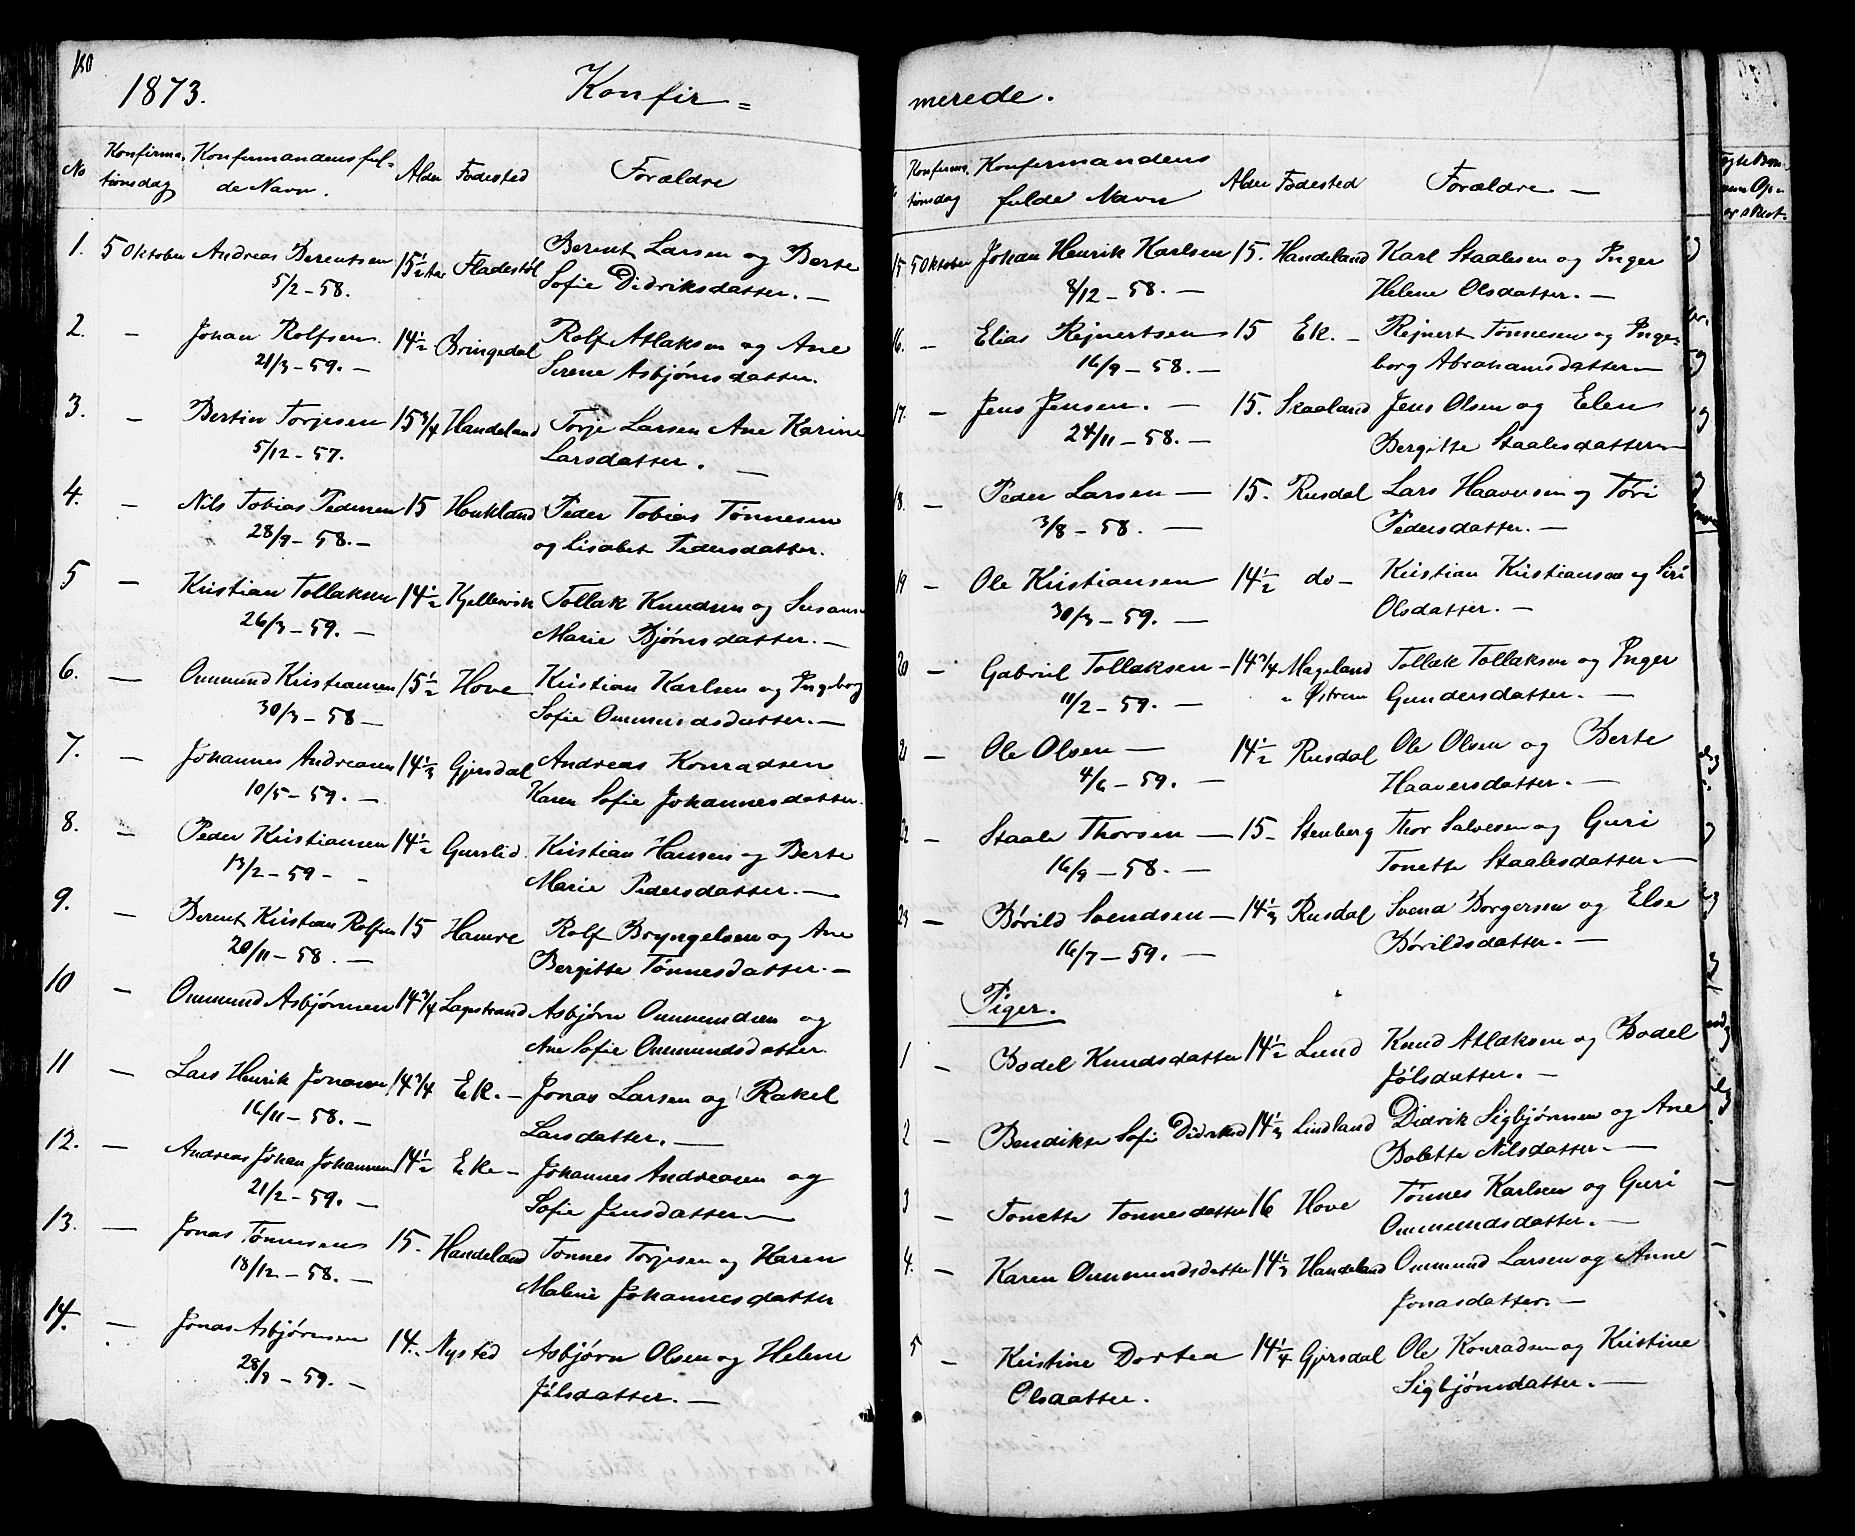 180
1873. Konfir=
No Konfirma- Konfirmandens ful- Alder Fødested Forældre
tionsdag de Navn.
1. 5 Oktober Andreas Berentsen 15 1/2 Fladestøl Berent Larsen og Berte
5/2 – 58. Sofie Didriksdatter. –
2. – Johan Rolfsen 14 1/2 Bringedal Rolf Atlaksen og Ane
21/3 – 59. – Serene Asbjørnsdatter.
3. – Bertin Torjesen 15 3/4 Handeland Torje Larsen Ane Karine
5/12 – 57. Larsdatter. –
4. – Nils Tobias Pedersen 15 Houkland Peder Tobias Tønnesen
28/9 – 58. – og Lisabet Pedersdatter.
5 – Kristian Tollaksen 14 1/2 Kjellevik Tollak Knudsen og Susanne
26/3 – 59. – Marie Bjørnsdatter. –
6. – Ommund Kristiansen 15 1/2 Hove Kristian Karlsen og Ingeborg
30/3 – 58 – Sofie Ommundsdatter. –
7. – Johannes Andreasen 14 1/3 Gjersdal Andreas Konradsen
10/5 – 59. – Karen Sofie Johannesdatter.
8. – Peder Kristiansen 14 1/2 Gurslid Kristian Hansen og Berte
13/2 – 59 – Marie Pedersdatter. –
9. – Berent Kristian Rolfsen 15 Hamre Rolf Bryngelsen og Ane
20/11 – 58. – Bergitte Tønnesdatter. –
10 – Ommund Asbjørnsen 14 3/4 Lagestrand Asbjørn Ommundsen og
Ane Sofie Ommundsdatter.
11 – Lars Henrik Jonasen 14 3/4 Ek. – Jonas Larsen og Rakel
16/11 – 58. – Larsdatter. –
12. – Andreas Johan Johannesen 14 1/2 Eke – Johannes Andreasen og
21/2 – 59. – Sofie Jensdatter –
13. – Jonas Tønnesen 15. Handeland Tønnes Torjesen og Karen
18/12 – 58. – Malene Johannesdatter
14. – Jonas Asbjørnsen 14. Nysted Asbjørn Olsen og Helene
28/9 – 59. – Jølsdatter. –
merede.
Konfirma- Konfirmandens Alder Fødested Forældre –
tionsdag fulde Navn
15 5 Oktober Johan Henrik Karlsen 15. Handeland Karl Staalesen og Inger
8/12 – 58. – Helene Olsdatter. –
16. – Elias Rejnertsen 15 Ek. – Rejnert Tønnesen og Inge=
16/9 – 58. – borg Abrahamsdatter –
17. – Jens Jensen. – 15. Skaaland Jens Olsen og Elen
24/11 – 58. – Bergitte Staalesdatter –
18. – Peder Larsen – 15. Rusdal Lars Haaversen og Tori
3/8 – 58. – Pedersdatter. –
19 – Ole Kristiansen 14 1/2 do – Kristian Kristiansen og Siri
30/3 – 59. – Olsdatter. –
20 – Gabriel Tollaksen – 14 3/4 Mageland Tollak Tollaksen og Inger
11/2 – 59. – Østrem Gundersdatter. –
21 – Ole Olsen – 14 1/2 Rusdal Ole Olsen og Berte
4/6 – 59. – Haaversdatter. –
22 – Staale Thorsen – 15 – Stenberg Thor Salvesen og Guri
16/9 – 58. – Tonette Staalesdatter. –
23 – Børild Svendsen – 14 1/3 Rusdal Svend Borgersen og Else
16/7 – 59. – Børildsdatter. –
Piger.
1 – Bodel Knudsdatter 14 1/2 Lund Knud Atlaksen og Bodel
Jølsdatter. –
2 – Bendikte Sofie 14 1/3 Lindland Didrik Sigbjørnsen og Ane
Bolette Nilsdatter. –
3 – Tonette Tønnesdatter 16 Hove Tønnes Karlsen og Guri
Ommundsdatter. –
4. – Karen Ommundsdatter 14 1/3 Handeland Ommund Larsen og Anne
Jonasdatter. –
5 – Kristine Dortea 14 1/4 Gjersdal Ole Konradsen og Kristine
Olsdatter. Sigbjørnsdatter. –